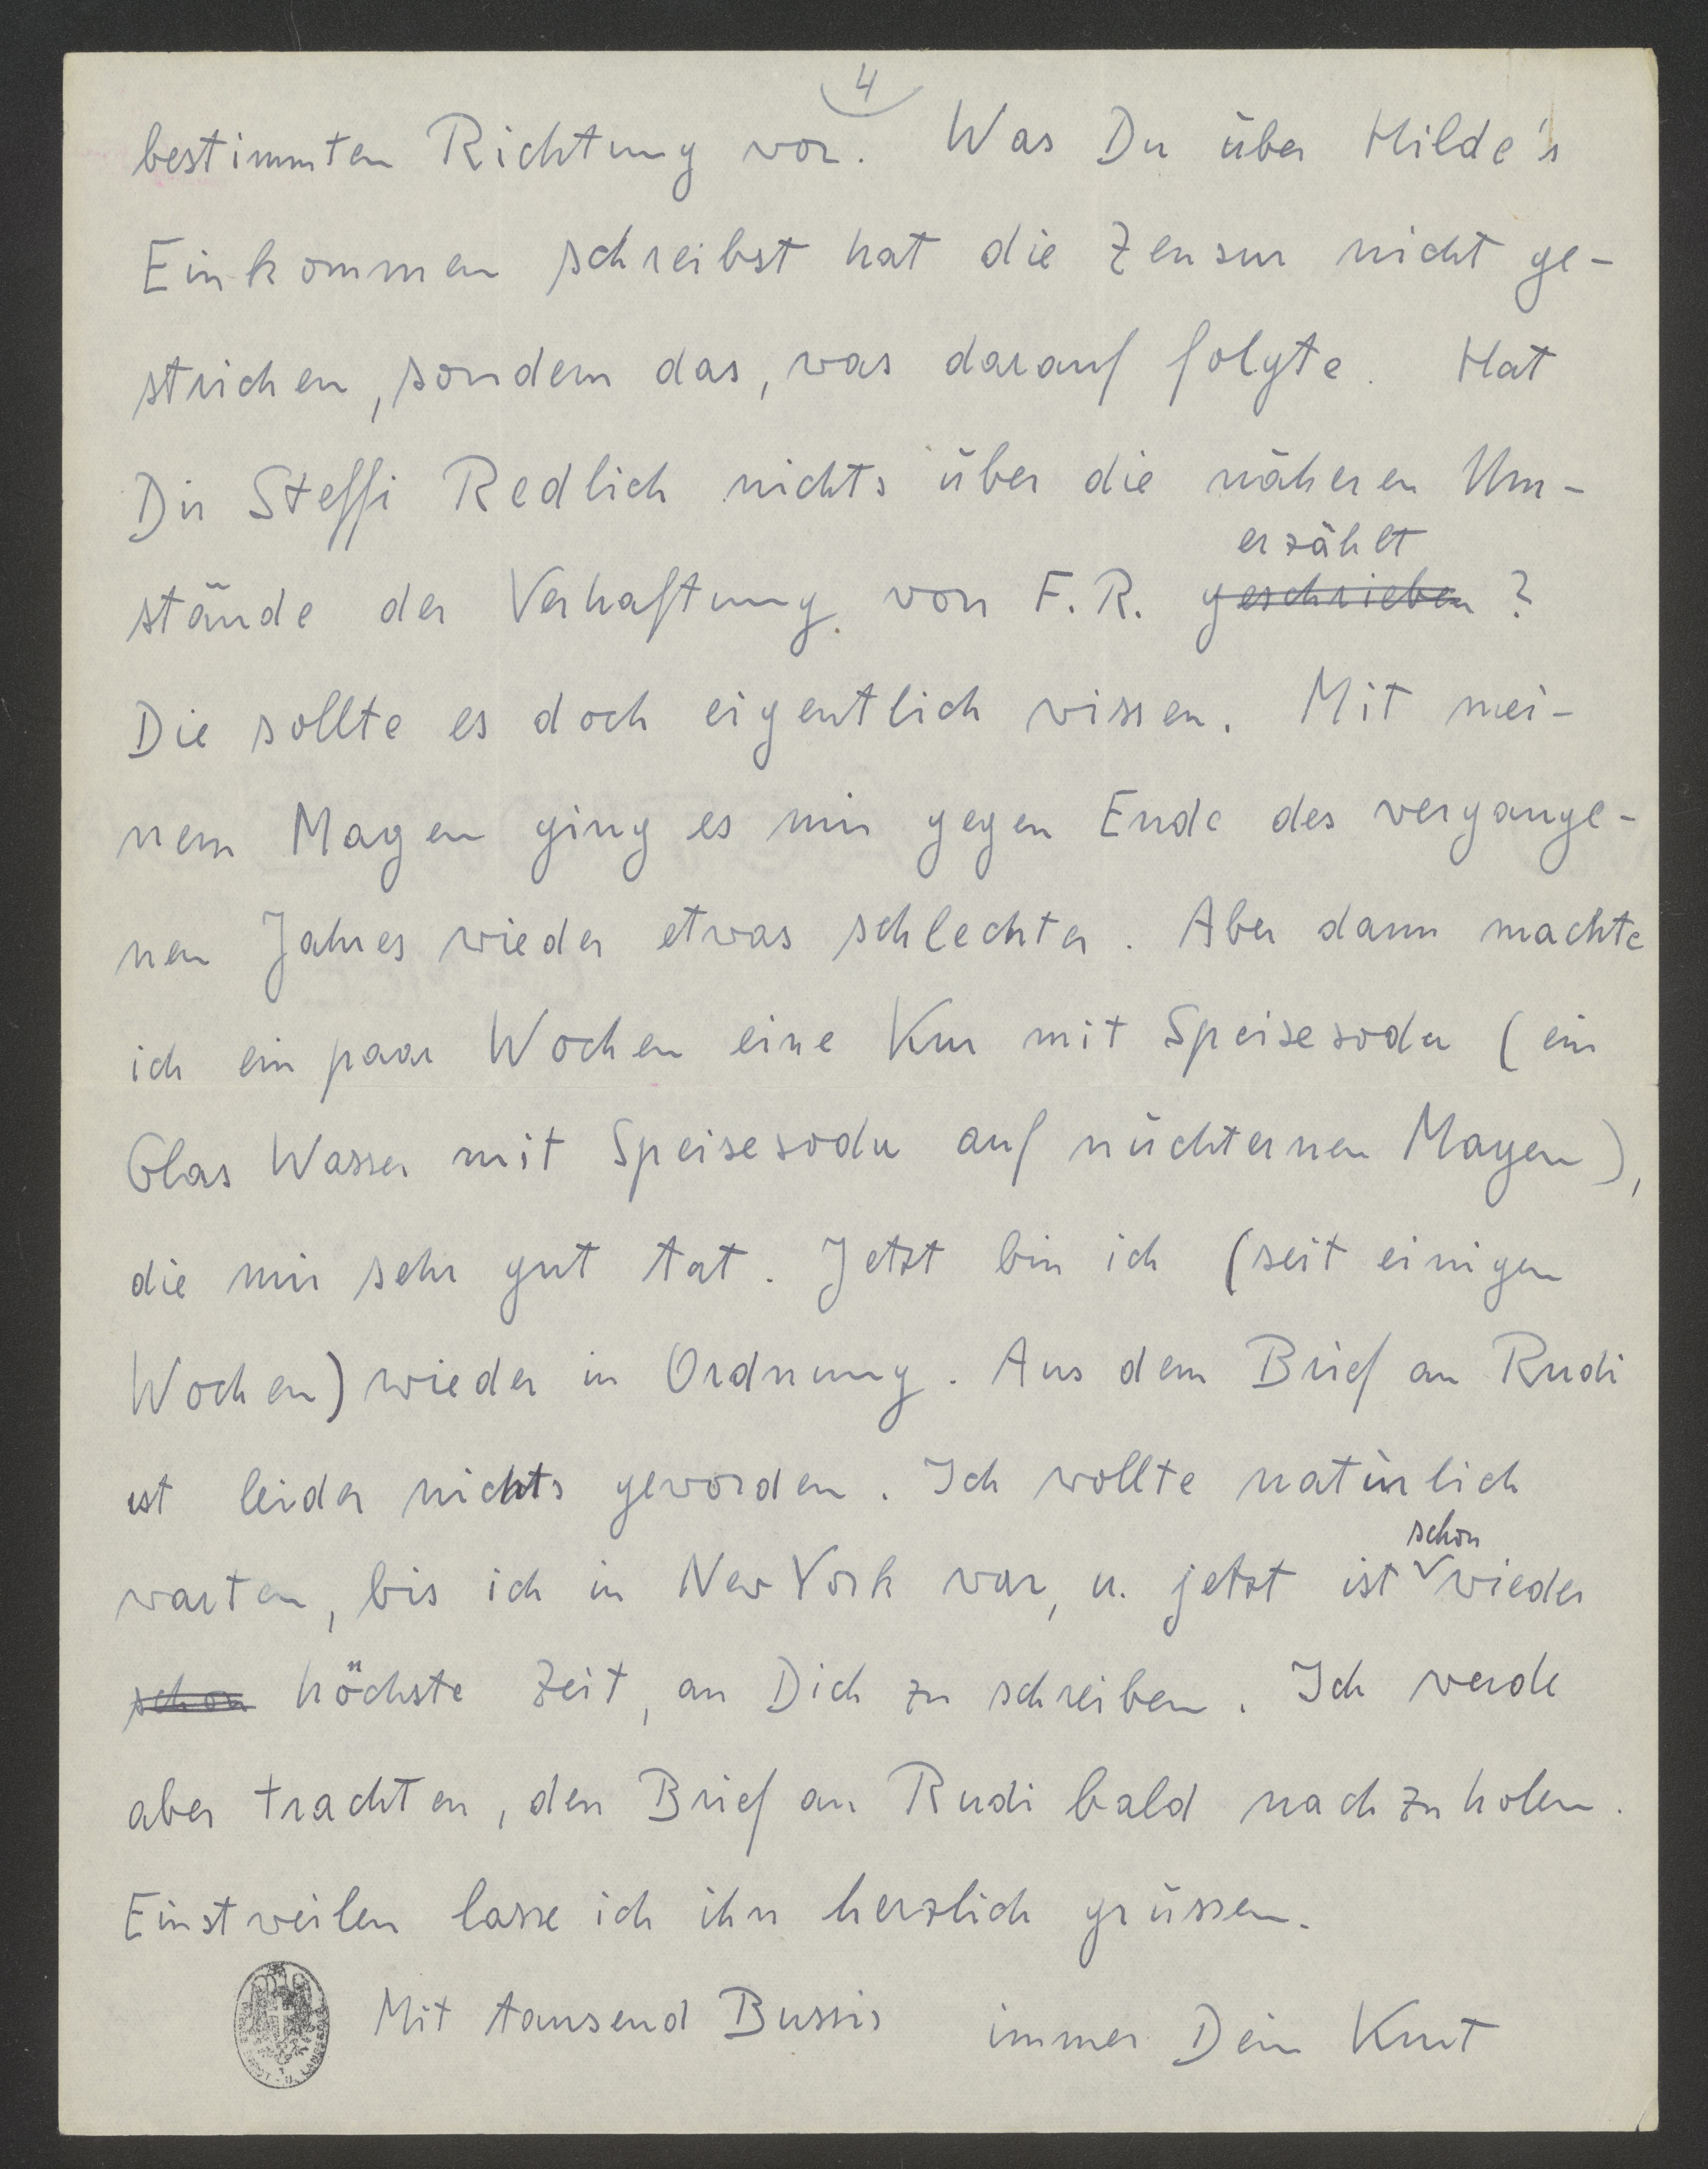 4
bestimmten Richtung vor. Was Du über Hilde's
Einkommen schreibst hat die Zensur nicht ge-
strichen, sondern das, was darauf folgte. Hat
Dir Steffi Redlich nichts über die näheren Um-
erzählt
stände der Verhaftung von F. R. geschrieben ?
Die sollte es doch eigentlich wissen. Mit mei-
nem Magen ging es mir gegen Ende des vergange-
nen Jahres wieder etwas schlechter. Aber dann machte
ich ein paar Wochen eine Kur mit Speisesoda (ein
Glas Wasser mit Speisesoda auf nüchternen Magen),
die mir sehr gut tat. Jetzt bin ich (seit einigen
Wochen) wieder in Ordnung. Aus dem Brief an Rudi
ist leider nichts geworden. Ich wollte natürlich
schon
warten, bis ich in New York war, u. jetzt ist wieder
schon höchste Zeit, an Dich zu schreiben. Ich werde
aber trachten, den Brief an Rudi bald nachzuholen.
Einstweilen lasse ich ihn herzlich grüssen.
Mit tausend Bussis immer Dein Kurt